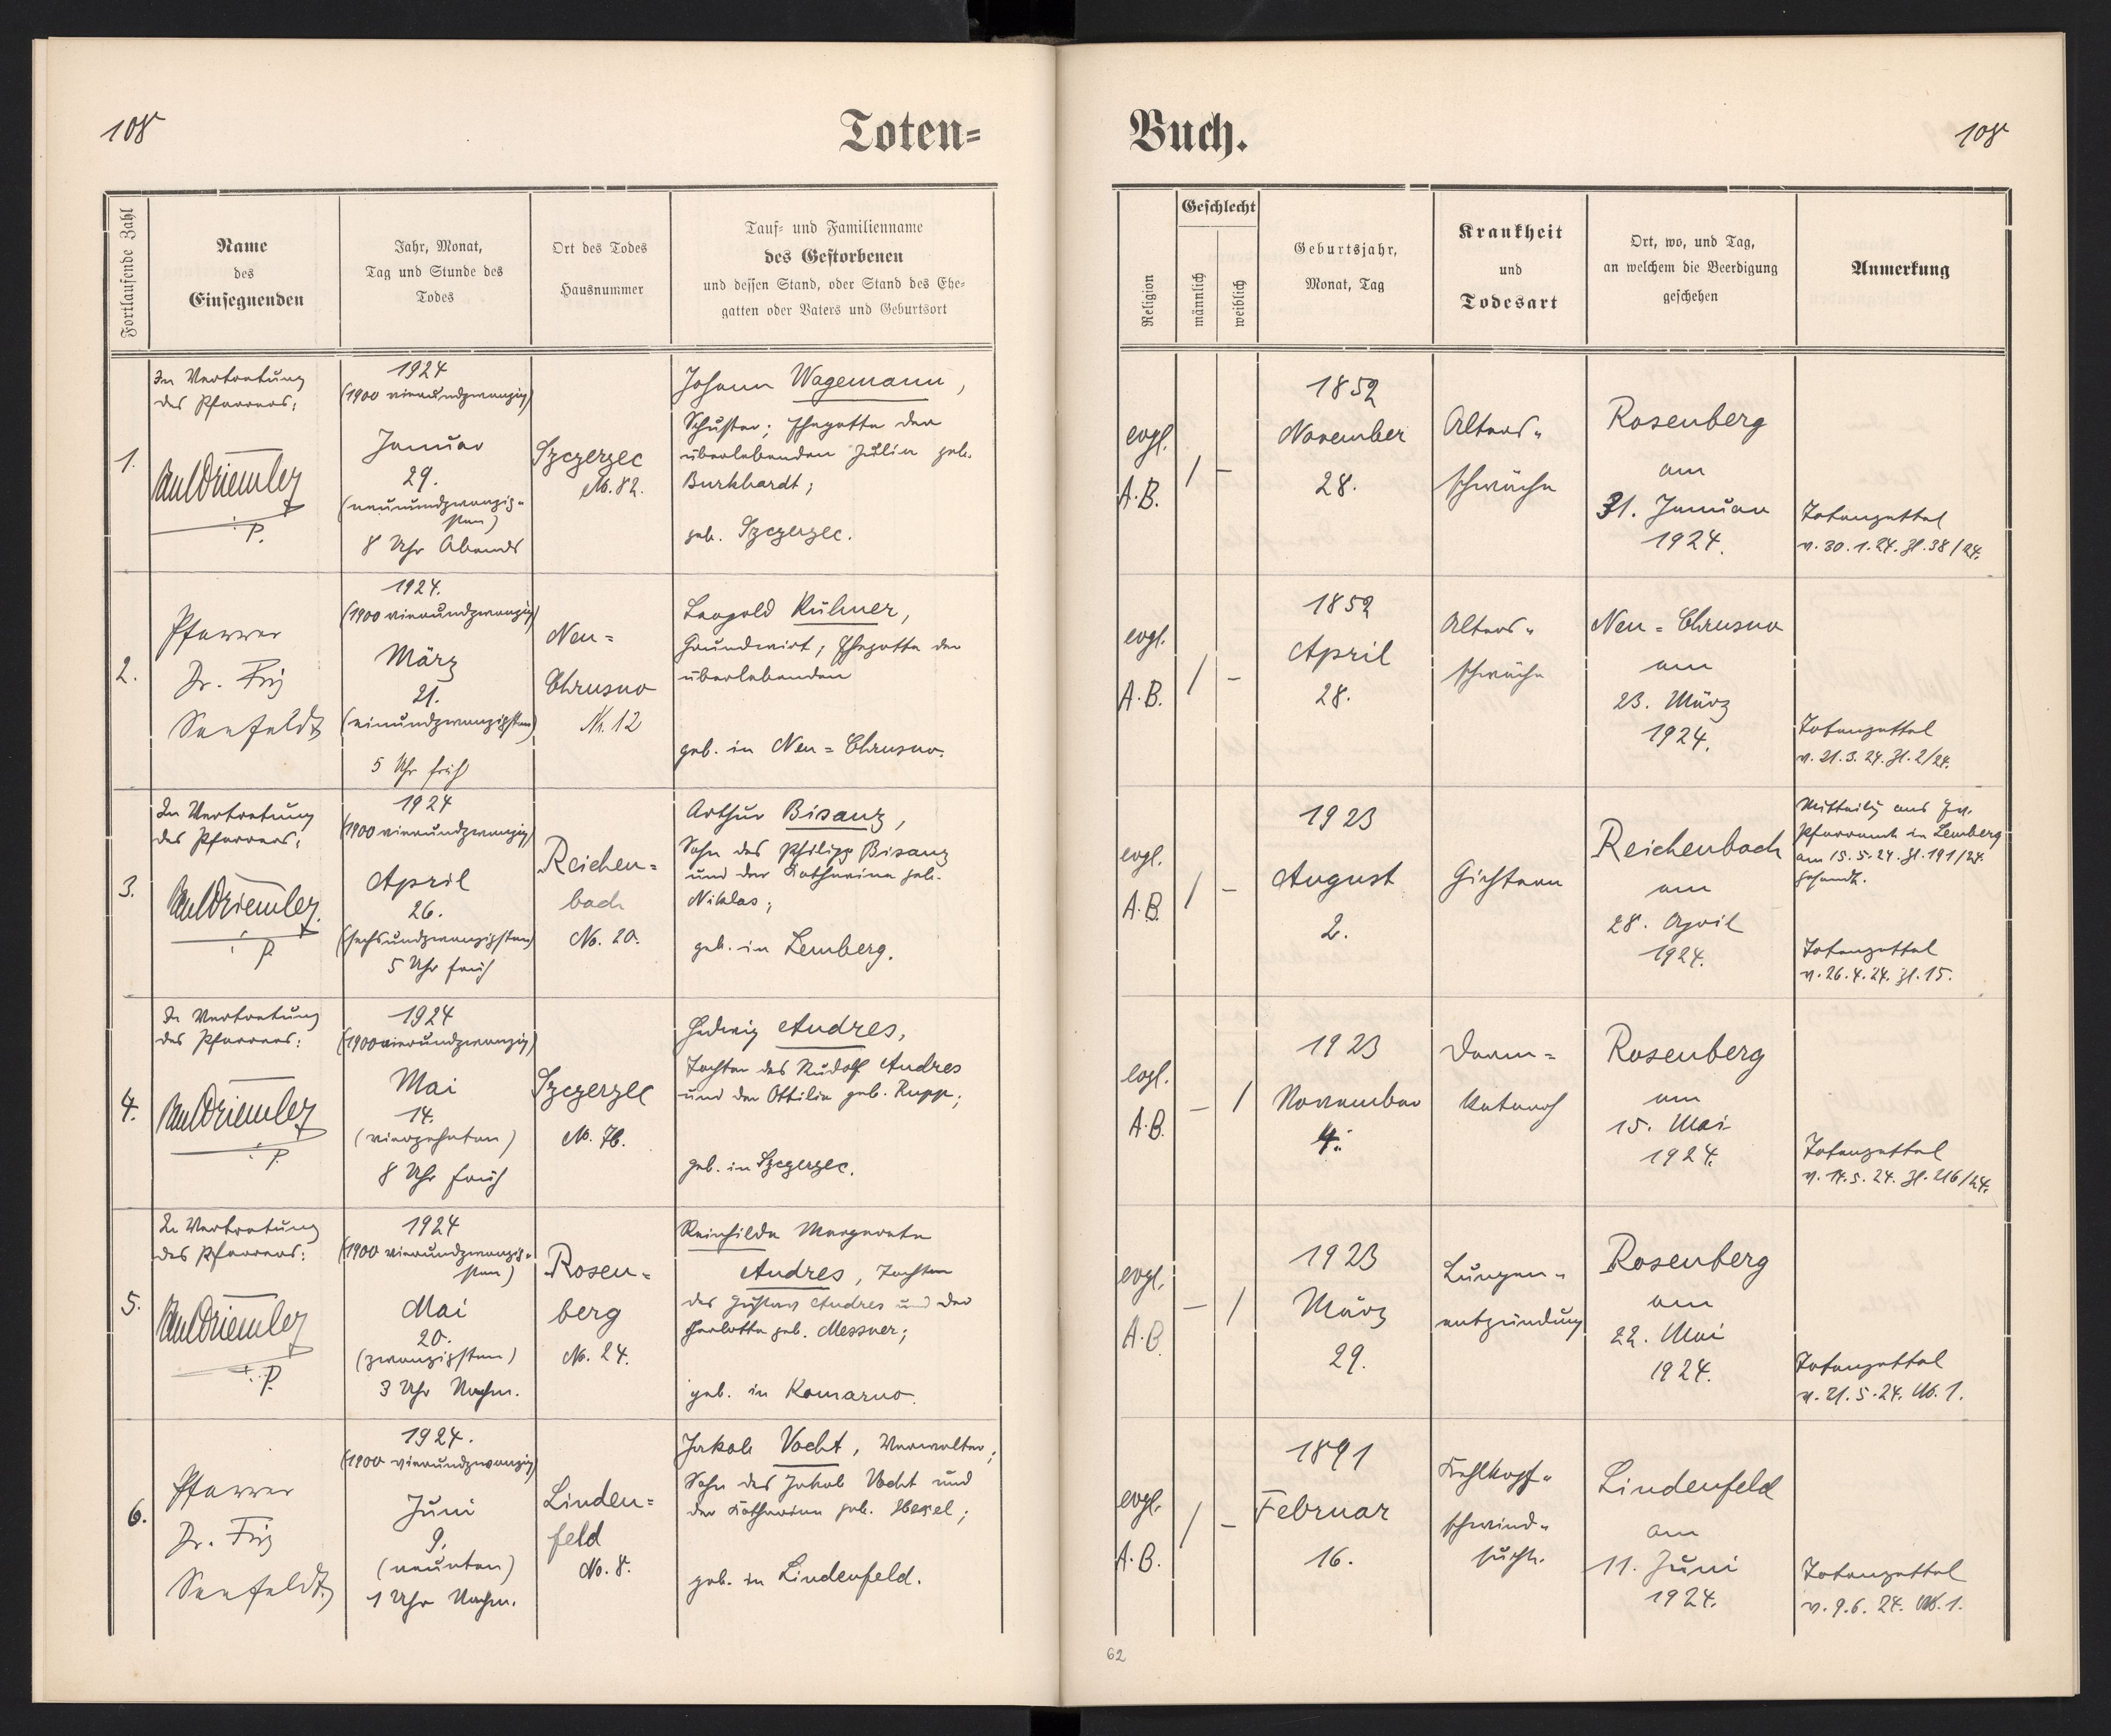 108
Toten=
Fortlaufende Zahl
Name
des
Einsegnenden
Jahr, Monat,
Tag und Stunde des
Todes
Ort des Todes
Hausnummer
Tauf= und Familienname
des Gestorbenen
und dessen Stand, oder Stand des Ehe=
gatten oder Vaters und Geburtsort
1.
In Vertretung
des Pfarrers:
P.
1924
(1900 vierundzwanzig)
Januar
29.
(neunundzwanzig=
sten)
8 Uhr Abends
Szczerzec
No. 82.
Johann Wagemann,
Schuster; Ehegatte der
überlebenden Julia geb.
Burkhardt;
geb. Szczerzec.
2.
Pfarrer
Dr. Friz
Seefeldt
1924.
(1900 vierundzwanzig)
März
21.
(einundzwanzigsten)
5 Uhr früh
Neu=
Chrusno
Nr. 12
Leopold Külmer,
Grundwirt; Ehegatte der
überlebenden
geb. in Neu=Chrusno.
3.
In Vertretung
des Pfarrers:
P.
1924
(1900 vierundzwanzig)
April
26.
(sechsundzwanzigsten)
5 Uhr früh
Reichen=
bach
No. 20.
Arthur Bisanz,
Sohn des Philipp Bisanz
und der Katharina geb.
Niklas;
geb. in Lemberg.
4.
In Vertretung
des Pfarrers:
P.
1924
(1900 vierundzwanzig)
Mai
14.
(vierzehnten)
8 Uhr früh
Szczerzec
No. 76.
Hedwig Andres,
Tochter des Rudolf Andres
und der Ottilia geb. Rupp;
geb. in Szczerzec.
5.
In Vertretung
des Pfarrers:
P.
1924
(1900 vierundzwanzig=
sten)
Mai
20.
(zwanzigsten)
3 Uhr Nachm.
Rosen=
berg
No. 24.
Reinhilde Margareta
Andres, Tochter
des Gustav Andres und der
Charlotta geb. Messner;
geb. in Komarno.
6.
Pfarrer
Dr. Friz
Seefeldt
1924.
(1900 vierundzwanzig)
Juni
9.
(neunten)
1 Uhr Nachm.
Linden=
feld
No. 8.
Jakob Vocht, Verwalter;
Sohn des Jakob Vocht und
der Katharina geb.
geb. in Lindenfeld.
Buch.
108
Religion
Geschlecht
männlich
weiblich
Geburtsjahr,
Monat, Tag
Krankheit
und
Todesart
Ort, wo, und Tag,
an welchem die Beerdigung
geschehen
Anmerkung
evgl.
A.B.
/ –
1852
November
28.
Alters=
schwäche
Rosenberg
am
31. Januar
1924.
Totenzettel
v. 30.1.24. Zl. 38/24.
evgl.
A.B.
/ –
1852
April
28.
Alters=
schwäche
Neu=Chrusno
am
23. März
1924.
Totenzettel
v. 21.3.24. Zl. 2/24.
evgl.
A.B.
/ –
1923
August
2.
Gichtern
Reichenbach
am
28. April
1924.
Mitteilg ans Ev.
Pfarramt in Lemberg
am 15.5.24. Zl. 191/24
gesandt.
Totenzettel
v. 26.4.24. Zl. 15.
evgl.
A.B.
– /
1923
November
4.
Darm=
katarrh
Rosenberg
am
15. Mai
1924.
Totenzettel
v. 14.5.24. Zl. 216/24.
evgl.
A.B.
– /
1923
März
29.
Lungen=
entzündung
Rosenberg
am
22. Mai
1924.
Totenzettel
v. 21.5.24. No. 1.
evgl.
A.B.
/ –
1891
Februar
16.
Kehlkopf=
schwind=
sucht.
Lindenfeld
am
11. Juni
1924.
Totenzettel
v. 9.6.24. No. 1.
62